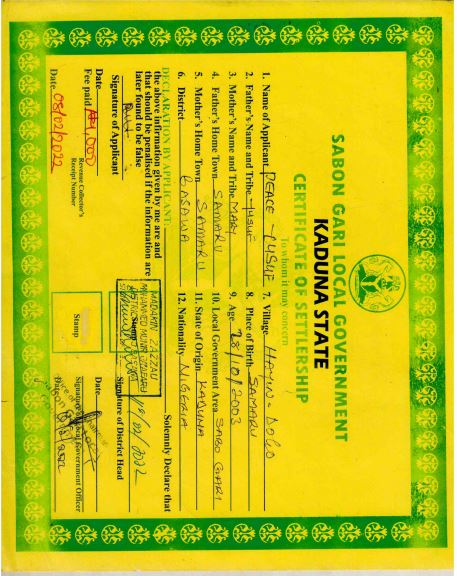 SABON GARI LOCAL GOVERNMENT
KADUNA STATE
CERTIFICATE OF SETTLERSHIP
To whom it may concern
1. Name of Applicant PEACE - YUSUF
2. Father's Name and Tribe YUSUF
3. Mother's Name and Tribe MARY
4. Father's Home Town SAMARU
5. Mother's Home Town SAMARU
6. District BASAWA
7. Village HAYIN - DOGO
8. Place of Birth SAMARU
9. Age 28/10/2003
10. Local Government Area SABO GARI
11. State of Origin KADUNA
12. Nationality NIGERIA
DECLARATION BY APPLICANT: Solemnly Declare that
the above infirmation given by me are and
that should be penalised if the information are
later found to be false
Signature of Applicant
Signature of District Head
MADAKIN ZAZZAU
Date
Fee paid ₦1,000
Revenue Collector's
Receipt Number
Date 08/02/2022
Stamp
Date
Signature of Local Government Officer